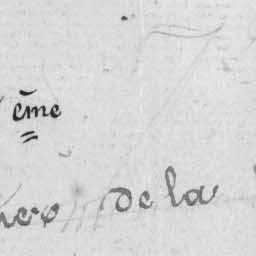 ème
de la